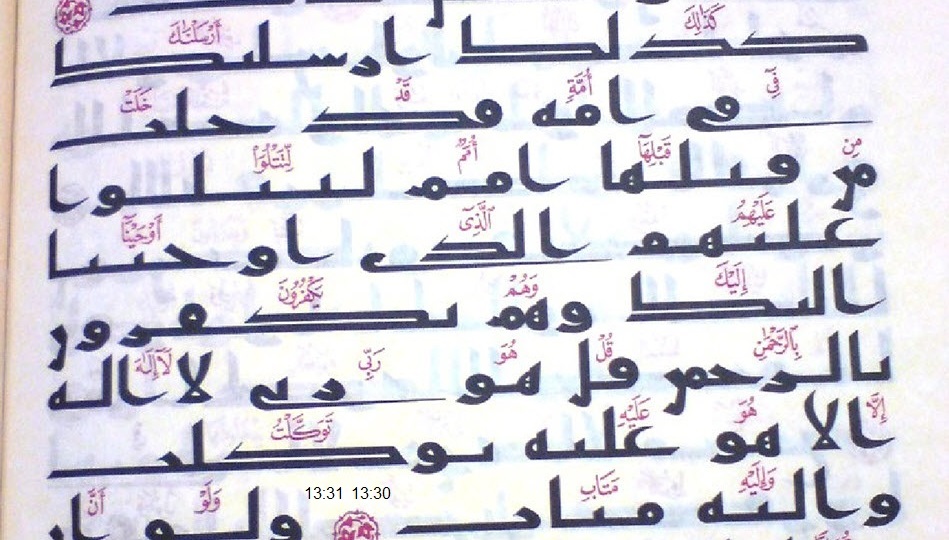 كَذَٰلِكَ أَرْسَلْنَـٰكَ
كذلك ارسلنك
فِىٓ أُمَّةٍ قَدْ خَلَتْ
فى امه قد خلت
مِن قَبْلِهَآ أُمَمٌ لِّتَتْلُوَا۟
من قبلها امم لتتلوا
عَلَيْهِمُ ٱلَّذِىٓ أَوْحَيْنَآ
عليهم الذى اوحينا
إِلَيْكَ وَهُمْ يَكْفُرُونَ
اليك وهم يكفرون
بِٱلرَّحْمَـٰنِ قُلْ هُوَ رَبِّى لَآ إِلَـٰهَ
بالرحمن قل هو ربى لا اله
إِلَّا هُوَ عَلَيْهِ تَوَكَّلْتُ
الا هو عليه توكلت
وَإِلَيْهِ مَتَابِ 13:30 13:31 وَلَوْ أَنَّ
واليه متاب ولو ان